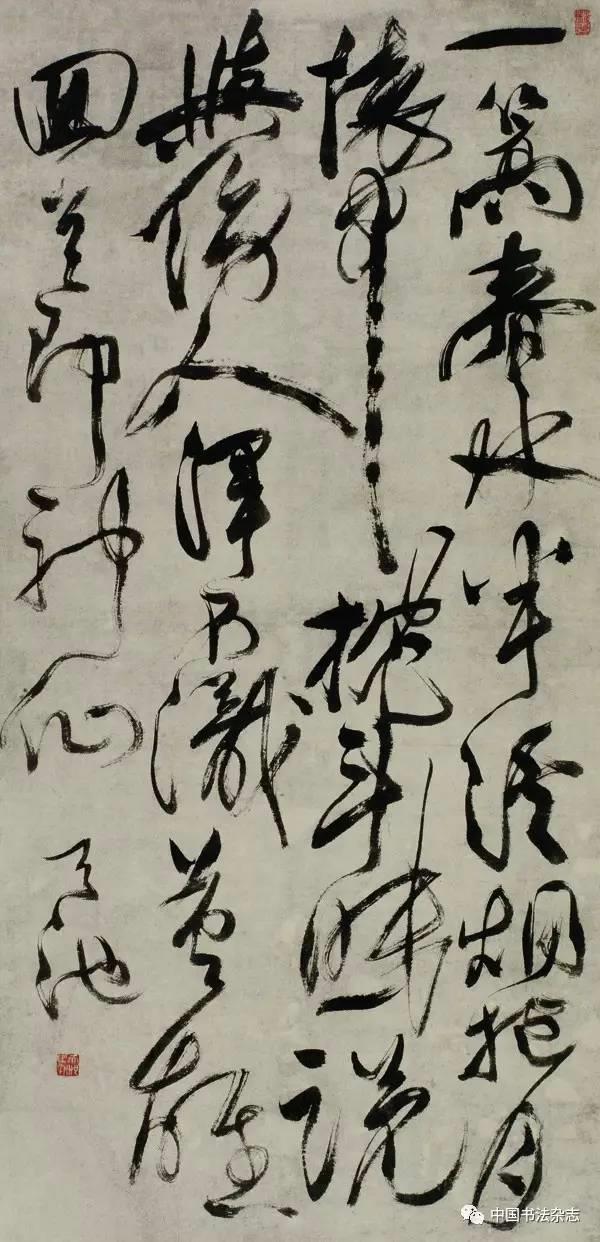 一篙春水半溪烟抱月
懷中枕斗眠說
與傍人渾不識英雄
回首即神仙
天池
中国书法杂志